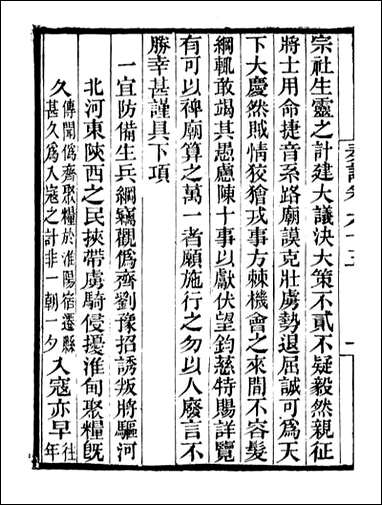 宗社生靈之計建大議決大策不貳不疑毅然親征
將士用命捷音系路廟謨克壯虜勢退屈誠可為天
下大慶然賊情狡獪戎事方棘機會之來間不容髮
綱輒敢竭其愚慮陳十事以獻伏望鈞慈特賜詳覽
有可以裨廟算之萬一者願施行之勿以人廢言不
勝幸甚謹具下項
一宜防備生兵綱竊觀僞齊劉豫招誘叛將驅河
北河東陝西之民挾帶虜騎侵擾淮甸聚糧旣
久傳聞僞齊聚糧於淮陽宿遷縣甚久為入寇之計非一朝一夕入寇亦早往年